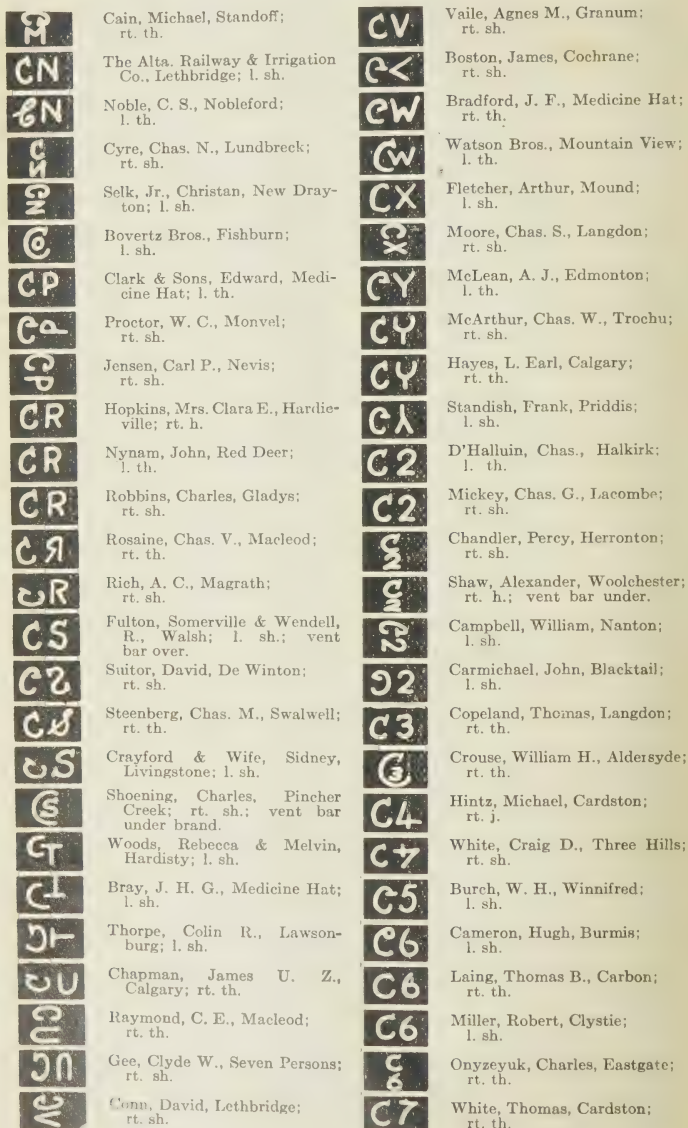 Cain, Michael, Standoff;
rt. th.
CN
The Alta. Railway & Irrigation
Co., Lethbridge; l. sh.
Noble, C. S., Nobleford;
l. th.
Cyre, Chas. N., Lundbreck;
rt. sh.
Selk, Jr., Christan, New Dray-
ton; l. sh.
Bovertz Bros., Fishburn;
l. sh.
CP
Clark & Sons, Edward, Medi-
cine Hat; l. th.
Proctor, W. C., Monvel;
rt. sh.
Jensen, Carl P., Nevis;
rt. sh.
CR
Hopkins, Mrs. Clara E., Hardie-
ville; rt. h.
CR
Nynam, John, Red Deer;
l. th.
CR
Robbins, Charles, Gladys;
rt. sh.
Rosaine, Chas. V., Macleod;
rt. th.
Rich, A. C., Magrath;
rt. sh.
CS
Fulton, Somerville & Wendell,
R., Walsh; l. sh.; vent
bar over.
Suitor, David, De Winton;
rt. sh.
Steenberg, Chas. M., Swalwell;
rt. th.
Crayford & Wife, Sidney,
Livingstone; l. sh.
Shoening, Charles, Pincher
Creek; rt. sh.; vent bar
under brand.
Woods, Rebecca & Melvin,
Hardisty; l. sh.
Bray, J. H. G., Medicine Hat;
l. sh.
Thorpe, Colin R., Lawson-
burg; l. sh.
Chapman, James U. Z.,
Calgary; rt. th.
Raymond, C. E., Macleod;
rt. th.
Gee, Clyde W., Seven Persons;
rt. sh.
Conn, David, Lethbridge;
rt. sh.
CV
Vaile, Agnes M., Granum;
rt. sh.
Boston, James, Cochrane;
rt. sh.
CW
Bradford, J. F., Medicine Hat;
rt. th.
CW
Watson Bros., Mountain View;
l. th.
CX
Fletcher, Arthur, Mound;
l. sh.
Moore, Chas. S., Langdon;
rt. sh.
CY
McLean, A. J., Edmonton;
l. th.
CY
McArthur, Chas. W., Trochu;
rt. sh.
CY
Hayes, L. Earl, Calgary;
rt. th.
Standish, Frank, Priddis;
l. sh.
C2
D'Halluin, Chas., Halkirk;
l. th.
C2
Mickey, Chas. G., Lacombe;
rt. sh.
Chandler, Percy, Herronton;
rt. sh.
Shaw, Alexander, Woolchester;
rt. h.; vent bar under.
Campbell, William, Nanton;
l. sh.
Carmichael, John, Blacktail;
l. sh.
C3
Copeland, Thomas, Langdon;
rt. th.
Crouse, William H., Aldersyde;
rt. th.
C4
Hintz, Michael, Cardston;
rt. j.
White, Craig D., Three Hills;
rt. sh.
C5
Burch, W. H., Winnifred;
l. sh.
C6
Cameron, Hugh, Burmis;
l. sh.
C6
Laing, Thomas B., Carbon;
rt. th.
C6
Miller, Robert, Clystie;
l. sh.
Onyzeyuk, Charles, Eastgate;
rt. th.
C7
White, Thomas, Cardston;
rt. th.